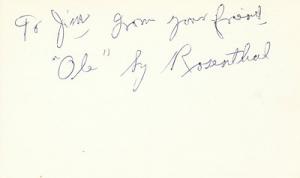 To Jim from your friend
"Ole" by Rosenthal